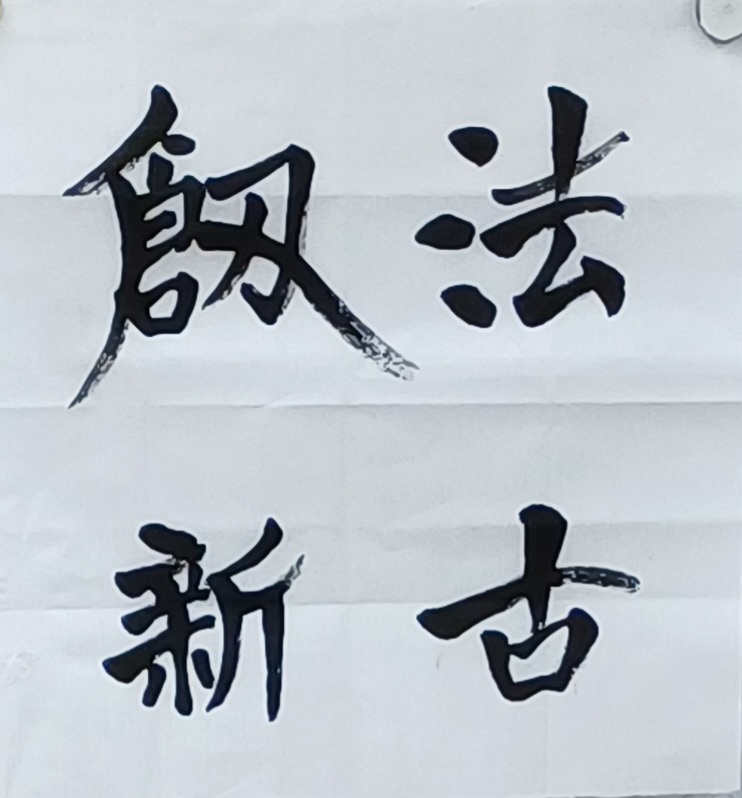 法古
創新